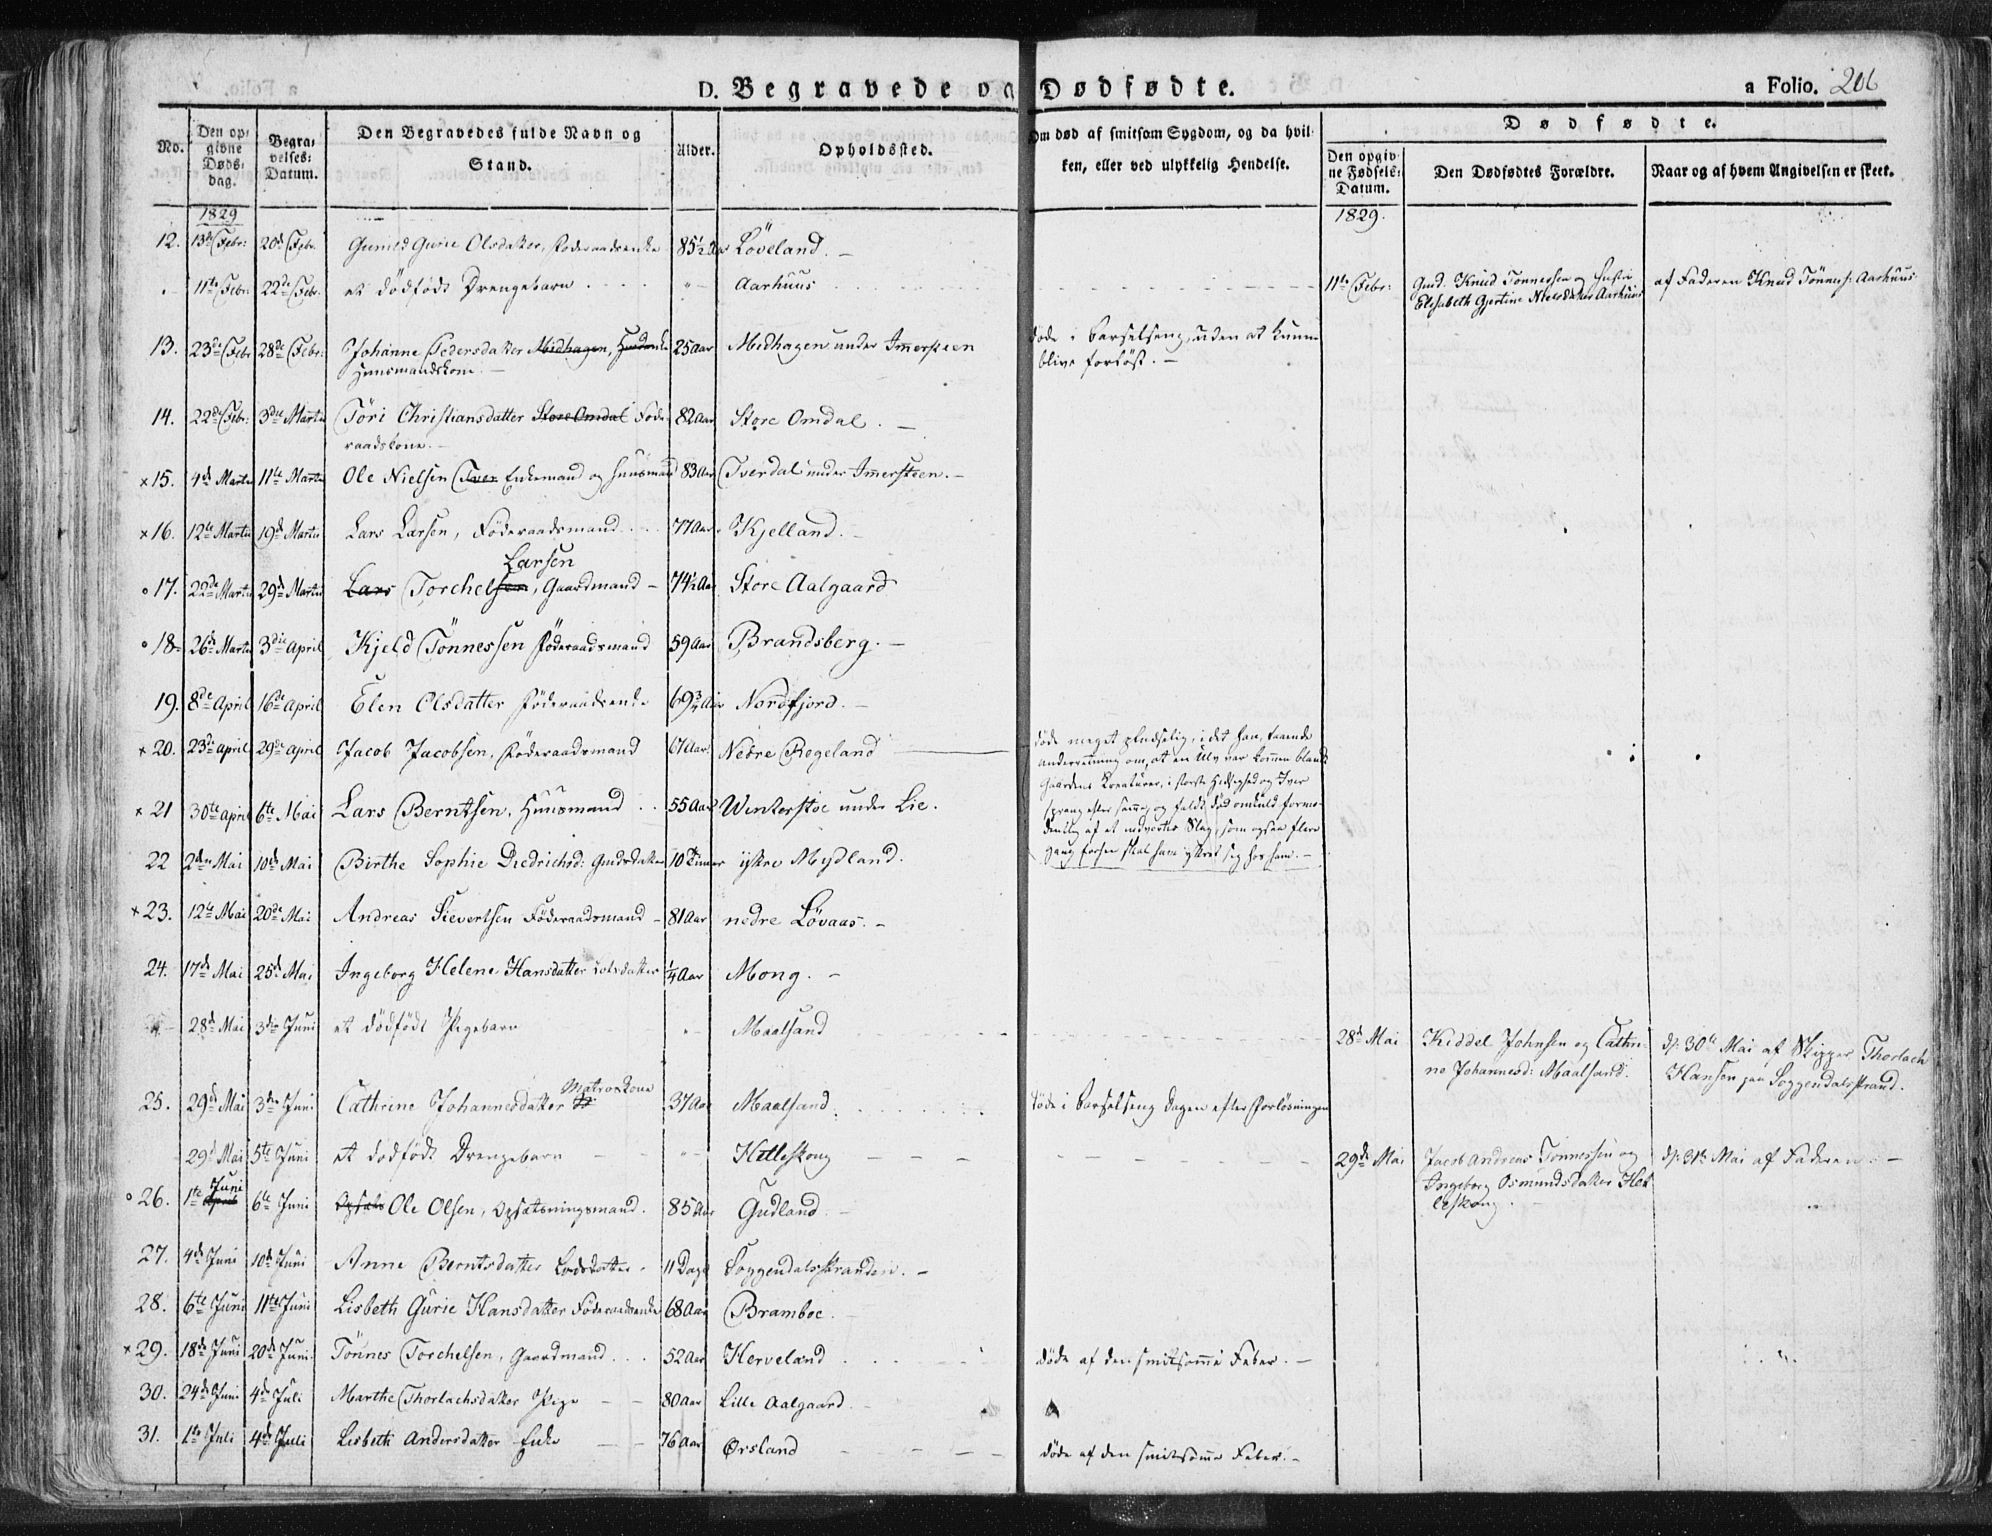 D. Begravede og Dødfødte.
a Folio. 206
No.
Den opgivne Dødsdag.
Begravelses-Datum.
Den Begravedes fulde Navn og Stand.
Alder.
Opholdssted.
Om død af smitsom Sygdom, og da hvilken, eller ved ulykkelig Hendelse.
Dødfødte.
Den opgivne Fødsels-Datum.
Den Dødfødtes Forældre.
Naar og af hvem Angivelsen er skeet.
1829
1829.
12. 13de Febr: 20de Febr. Gunild Gurie Olsdatter, Föderaadsenke 85 1/2 Aar Löveland. –
11te Febr: 22de Febr. et dödfödt Drengebarn Aarhuus 11te Febr: Gmd. Knud Tönnessen og Hustru af Faderen Knud Tönnes: Aarhuus
Elisabeth Gjertine Nielsdatter Aarhuus
13. 23de Febr 28de Febr: Johanne Pedersdatter Midhagen, 25 Aar Midhagen under Immersteen döde i Barselseng, uden at kunne
Huusmandskone. – blive forlöst. –
14. 22de Febr: 3die Martii Töri Christiansdatter Store Omdal Föde- 82 Aar Store Omdal. –
raadskone. –
×15. 4de Martii 11te Martii Ole Nielsen Tver Enkemand og Huusmand 83 Aar Tverdal under Immersteen. –
×16. 12te Martii 19de Martii Lars Larsen, Föderaadsmand. 77 Aar. Kjelland. –
Larsen
o17. 22de Martii 29de Martii Lars Torchelsen, Gaardmand – 74 1/2 Aar Store Aalgaard
o18. 26de Martii 3die April Kjeld Tönnessen Föderaadsmand 59 Aar Brandsberg. –
19. 8de April 16de April Elen Olsdatter Föderaadsenke 69 3/4 Aar Nordfjord. –
×20. 23de April 29de April Jacob Jacobsen, Föderaadsmand 67 Aar Nedre Regeland döde meget pludselig, idet han, faaende
underretning om, at en Ulv var kommen blandt
Gaardens Kreaturer, i störste Hidsighed og Iver
×21 30te April 6te Mai Lars Berntsen, Huusmand 55 Aar Vinterstöe under Lie. sprang efter samme, og faldt död omkuld formo-
dentlig af et indvortes Slag, som ogsaa flere
22 2den Mai 10de Mai Birthe Sophie Diedrichsd: Gudsdatter 10 Timer ystre Mydland. Gang forhen skal have yttret sig hos ham. –
×23. 12te Mai 20de Mai Andreas Sievertsen Föderaadsmand – 81 Aar nedre Lövaas. –
24. 17de Mai 25de Mai Ingeborg Helene Hansdatter 1/4 Aar Mong. –
28de Mai 3die Juni et dödfödt Pigebarn Maalsand 28de Mai Kiddel Johnsen og Cathri- d: 30te Mai af Skipper Thorlach
ne Johannesd: Maalsand. Hansen paa Soggendalsstrand.
Matroskone
25. 29de Mai 3die Juni Cathrine Johannesdatter 37 Aar Maalsand döde i Barselseng Dagen efter Forlösningen
29de Mai 5te Juni et dödfödt Drengebarn Helleskong 29de Mai Jacob Andreas Tönnessen og d: 31te Mai af Faderen. –
Ingeborg Osmundsdatter Hel-
leskong.
Juni
o26. 1te April 6te Juni Opsats Ole Olsen, Opsætningsmand. 85 Aar Gudland. –
27. 4de Juni 10de Juni Anne Berntsdatter Lodsdatter. 11 Dage Soggendalsstranden. –
28. 6te Juni 11te Juni Lisbeth Gurie Hansdatter Föderaadsenke 68 Aar Bramboe. –
×29. 18de Juni 20de Juni Tönnes Torchelsen, Gaardmand 52 Aar Herveland döde af den smitsomme Feber. –
30. 24de Juni 4de Juli Marthe Thorlachsdatter Pige 80 Aar Lille Aalgaard. –
31. 1te Juli 4de Juli Lisbeth Andersdatter Enke 76 Aar Örsland döde af den smitsomme Feber. –